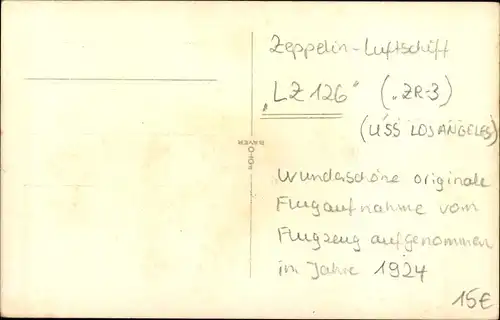 Zeppelin-Luftschiff
„LZ 126" („ZR-3)
(USS LOS ANGELES)
Wunderschöne originale
Flugaufnahme vom
Flugzeug aufgenommen
im Jahre 1924
15€